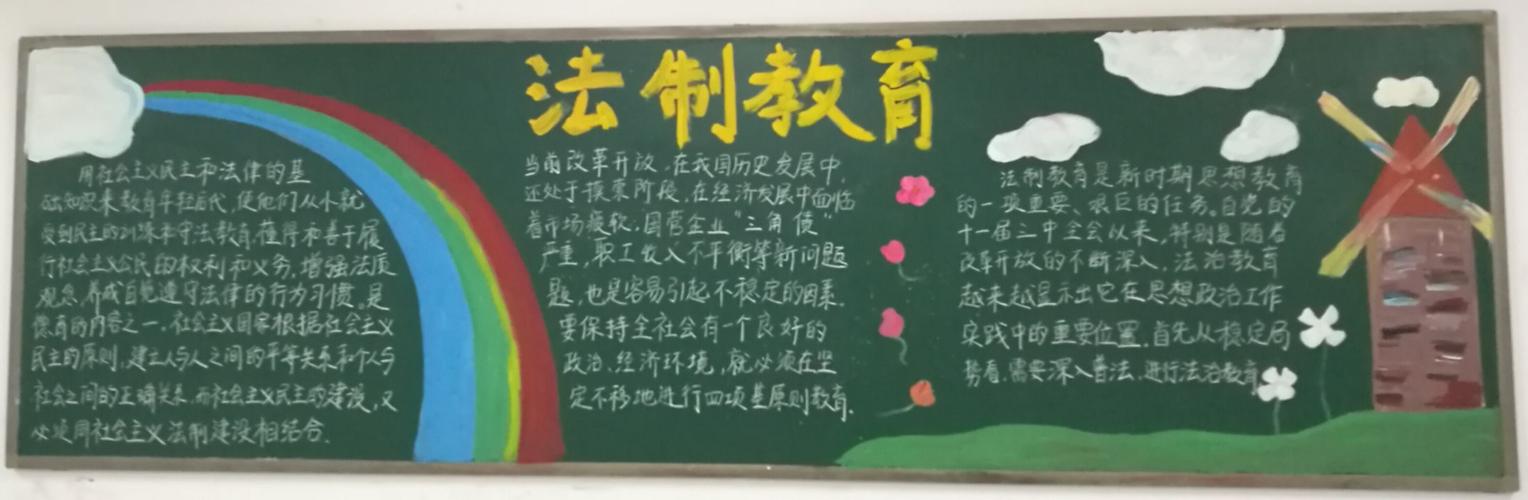 法制教育
用社会主义民主和法律的基
础知识来教育年轻后代，使他们从小就
受到民主的训练和守法教育，懂得和善于履
行社会主义公民的权利和义务，增强法质
观念，养成自觉遵守法律的行为习惯。是
德育的内容之一。社会主义国家根据社会主义
民主的原则，建立人与人之间的平等关系和个人与
社会之间的正确关系。而社会主义民主的建设，又
必须用社会主义法制建设相结合．
当前改革开放，在我国历史发展中，
还处于摸索阶段，在经济发展中面临
着市场疲软，国营企业“三角债”
严重，职工收入不平衡等新问题
题，也是容易引起不稳定的因素．
要保持全社会有一个良好的
政治、经济环境，就必须在坚
定不移地进行四项基原则教育．
法制教育是新时期思想教育
的一项重要、艰巨的任务。自党的
十一届三中全会以来，特别是随着
改革开放的不断深入，法治教育
越来越显示出它在思想政治工作
实践中的重要位置．首先从稳定局
势看，需要深入普法，进行法治教育．